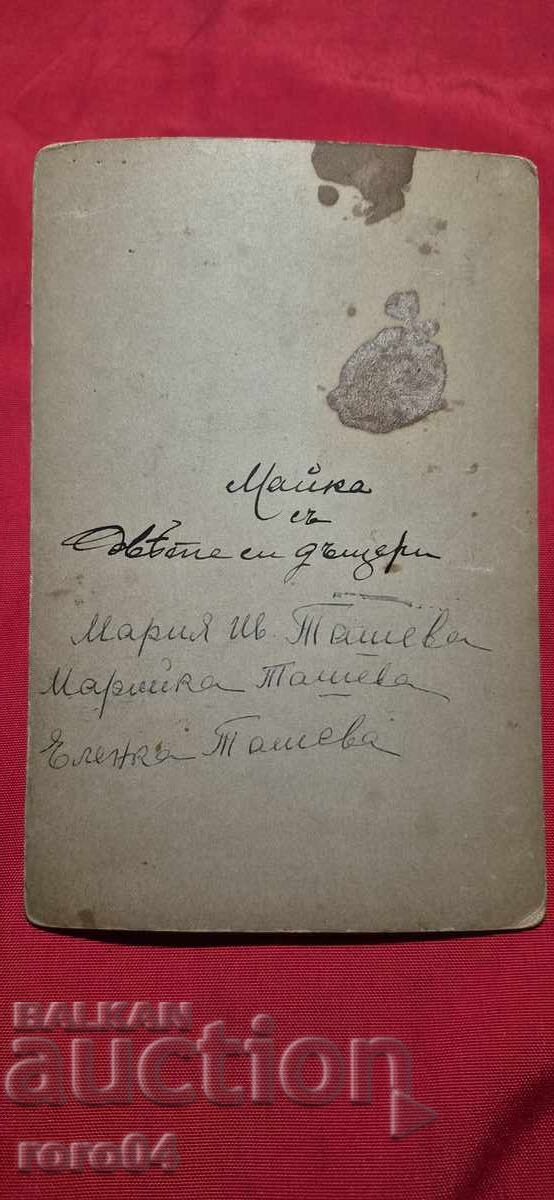 Майка
съ
двѣте си дъщери
Мария Ив. Ташева
Марийка Ташева
Еленка Ташева
BALKAN
auction
roro04